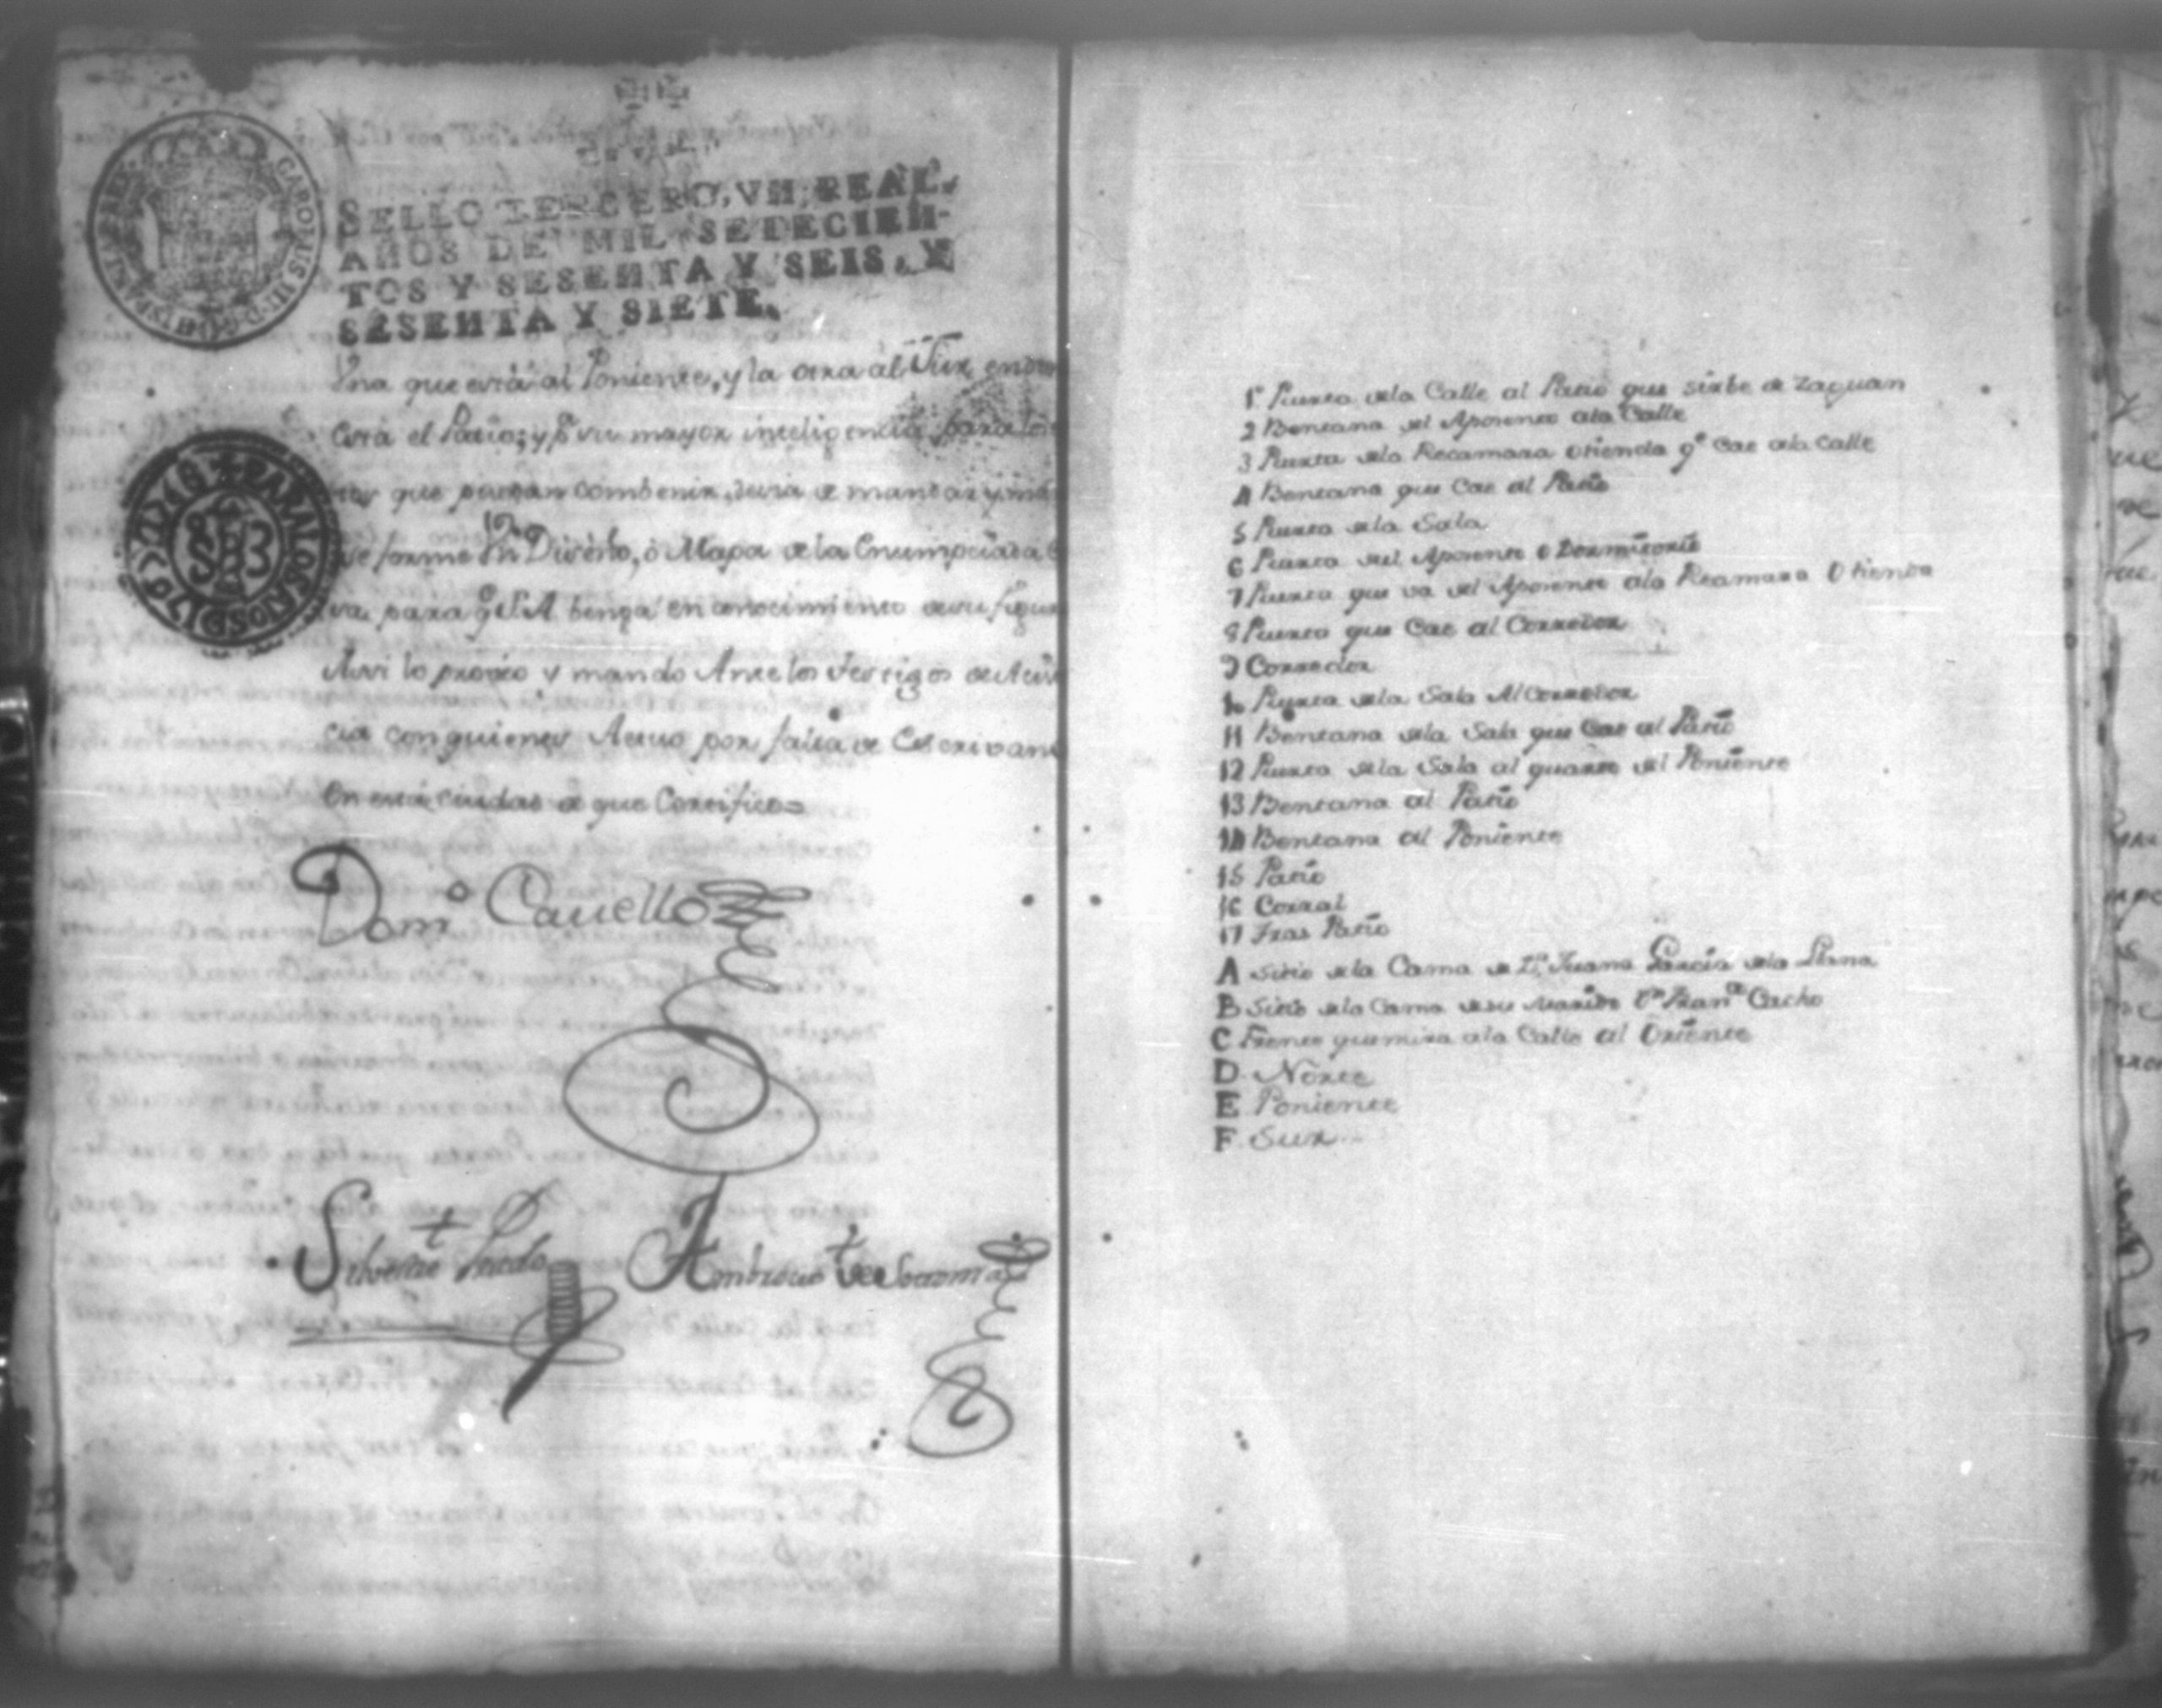 CAROLUS III D G HISPANIAR REX
SELLO TERCERO, VN REAL,
AÑOS DE MIL SETECIEN-
TOS Y SESENTA Y SEIS, Y
SESENTA Y SIETE.
Vna que está al Poniente, y la otra al Sur, en
cerá el Patio; y pª su mayor inteligencia, para lo
que puedan combenir, devia de mandar y
se forme Vn Diceño, ò Mapa dela Enumpciada
para qe S.A. benga en conocimiento desu figu
Assi lo proveo y mando Ante los Testigos de
cia con quienes Actuo por falta de Escrivan
en esta Ciudad de que Certifico=
PARA LOS AÑOS D 1768
Domº Cavello
Silvestre Prado
Ambrocio de Socoma
1º Puerta dela Calle al Patio que sirbe de Zaguan
2 Bentana del Aposento ala Calle
3 Puerta dela Recamara o tienda qe Cae ala Calle
4 Bentana que Cae al Patio
5 Puerta dela Sala
6 Puerta del Aposento o Dormitorio
7 Puerta que va del Aposento ala Recamara O tienda
8 Puerta que Cae al Corredor
9 Corredor
10 Puerta dela Sala Al Corredor
11 Bentana dela Sala que Cae al Patio
12 Puerta dela Sala al quarto del Poniente
13 Bentana al Patio
14 Bentana al Poniente
15 Patio
16 Corral
17 Tras Patio
A Sitio dela Cama de Dª Juana García dela Llana
B Sitio dela Cama desu Marido Dn Franco Cacho
C Frente que mira ala Calle al Oriente
D Norte
E Poniente
F Sur